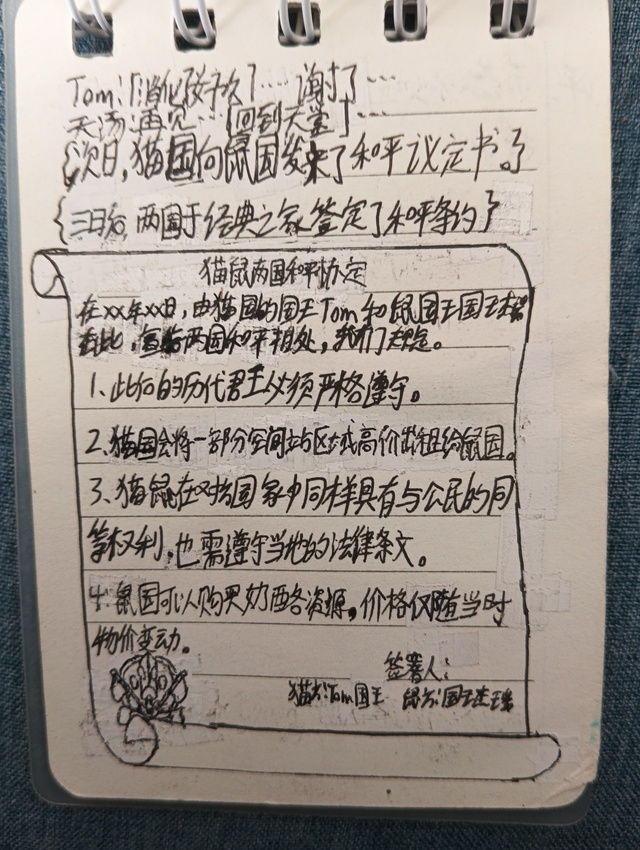 Tom:「消化好久「…谢了…
天汤:再见…「回到天堂「…
{次日,猫国向鼠国发来了和平议定书。}
{三日后,两国于经典之家签定了和平条约}
猫鼠两国和平协定
在xx年xx日,由猫国的国王Tom和鼠国王国王杰
在此,宣告两国和平相处,我们规定。
1、此后的历代君王必须严格遵守。
2、猫国会将一部分空间站区域高价出租给鼠国。
3、猫鼠在对方国家中同样具有与公民的同
等权利,也需遵守当地的法律条文。
4、鼠国可以购买奶酪各资源,价格仅随当时
物价变动。
签署人:
猫方:Tom国王 鼠方:国王杰瑞